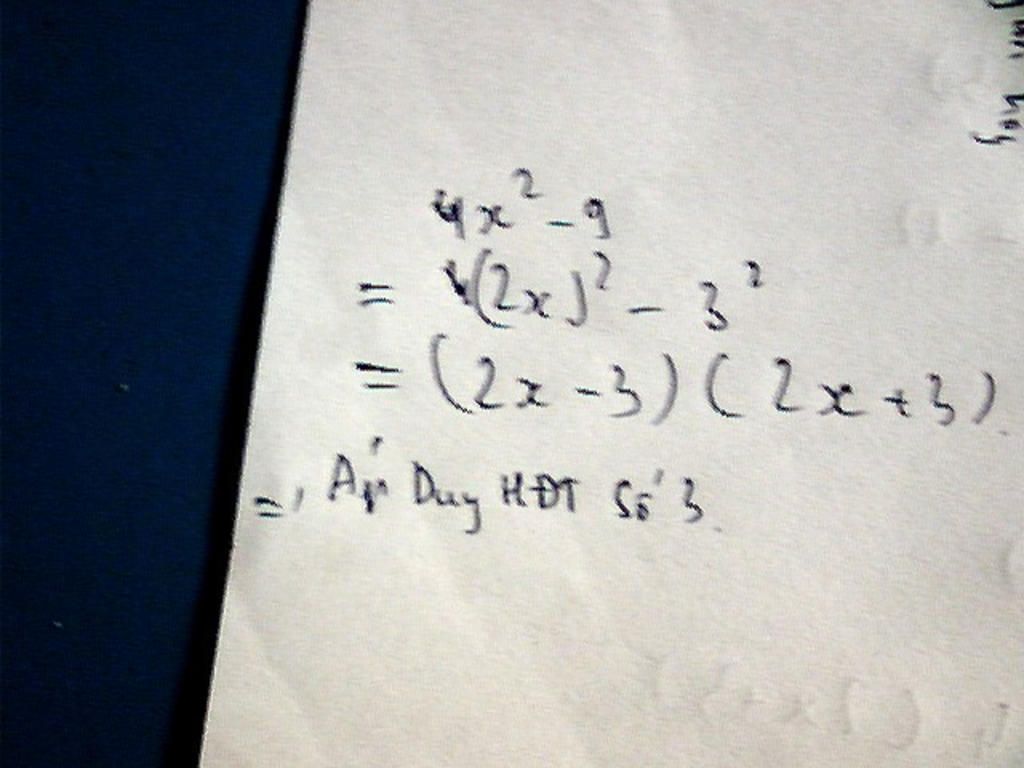 4x² - 9
= (2x)² - 3²
= (2x - 3) (2x + 3).
=, Áp Dụng HĐT Số 3.